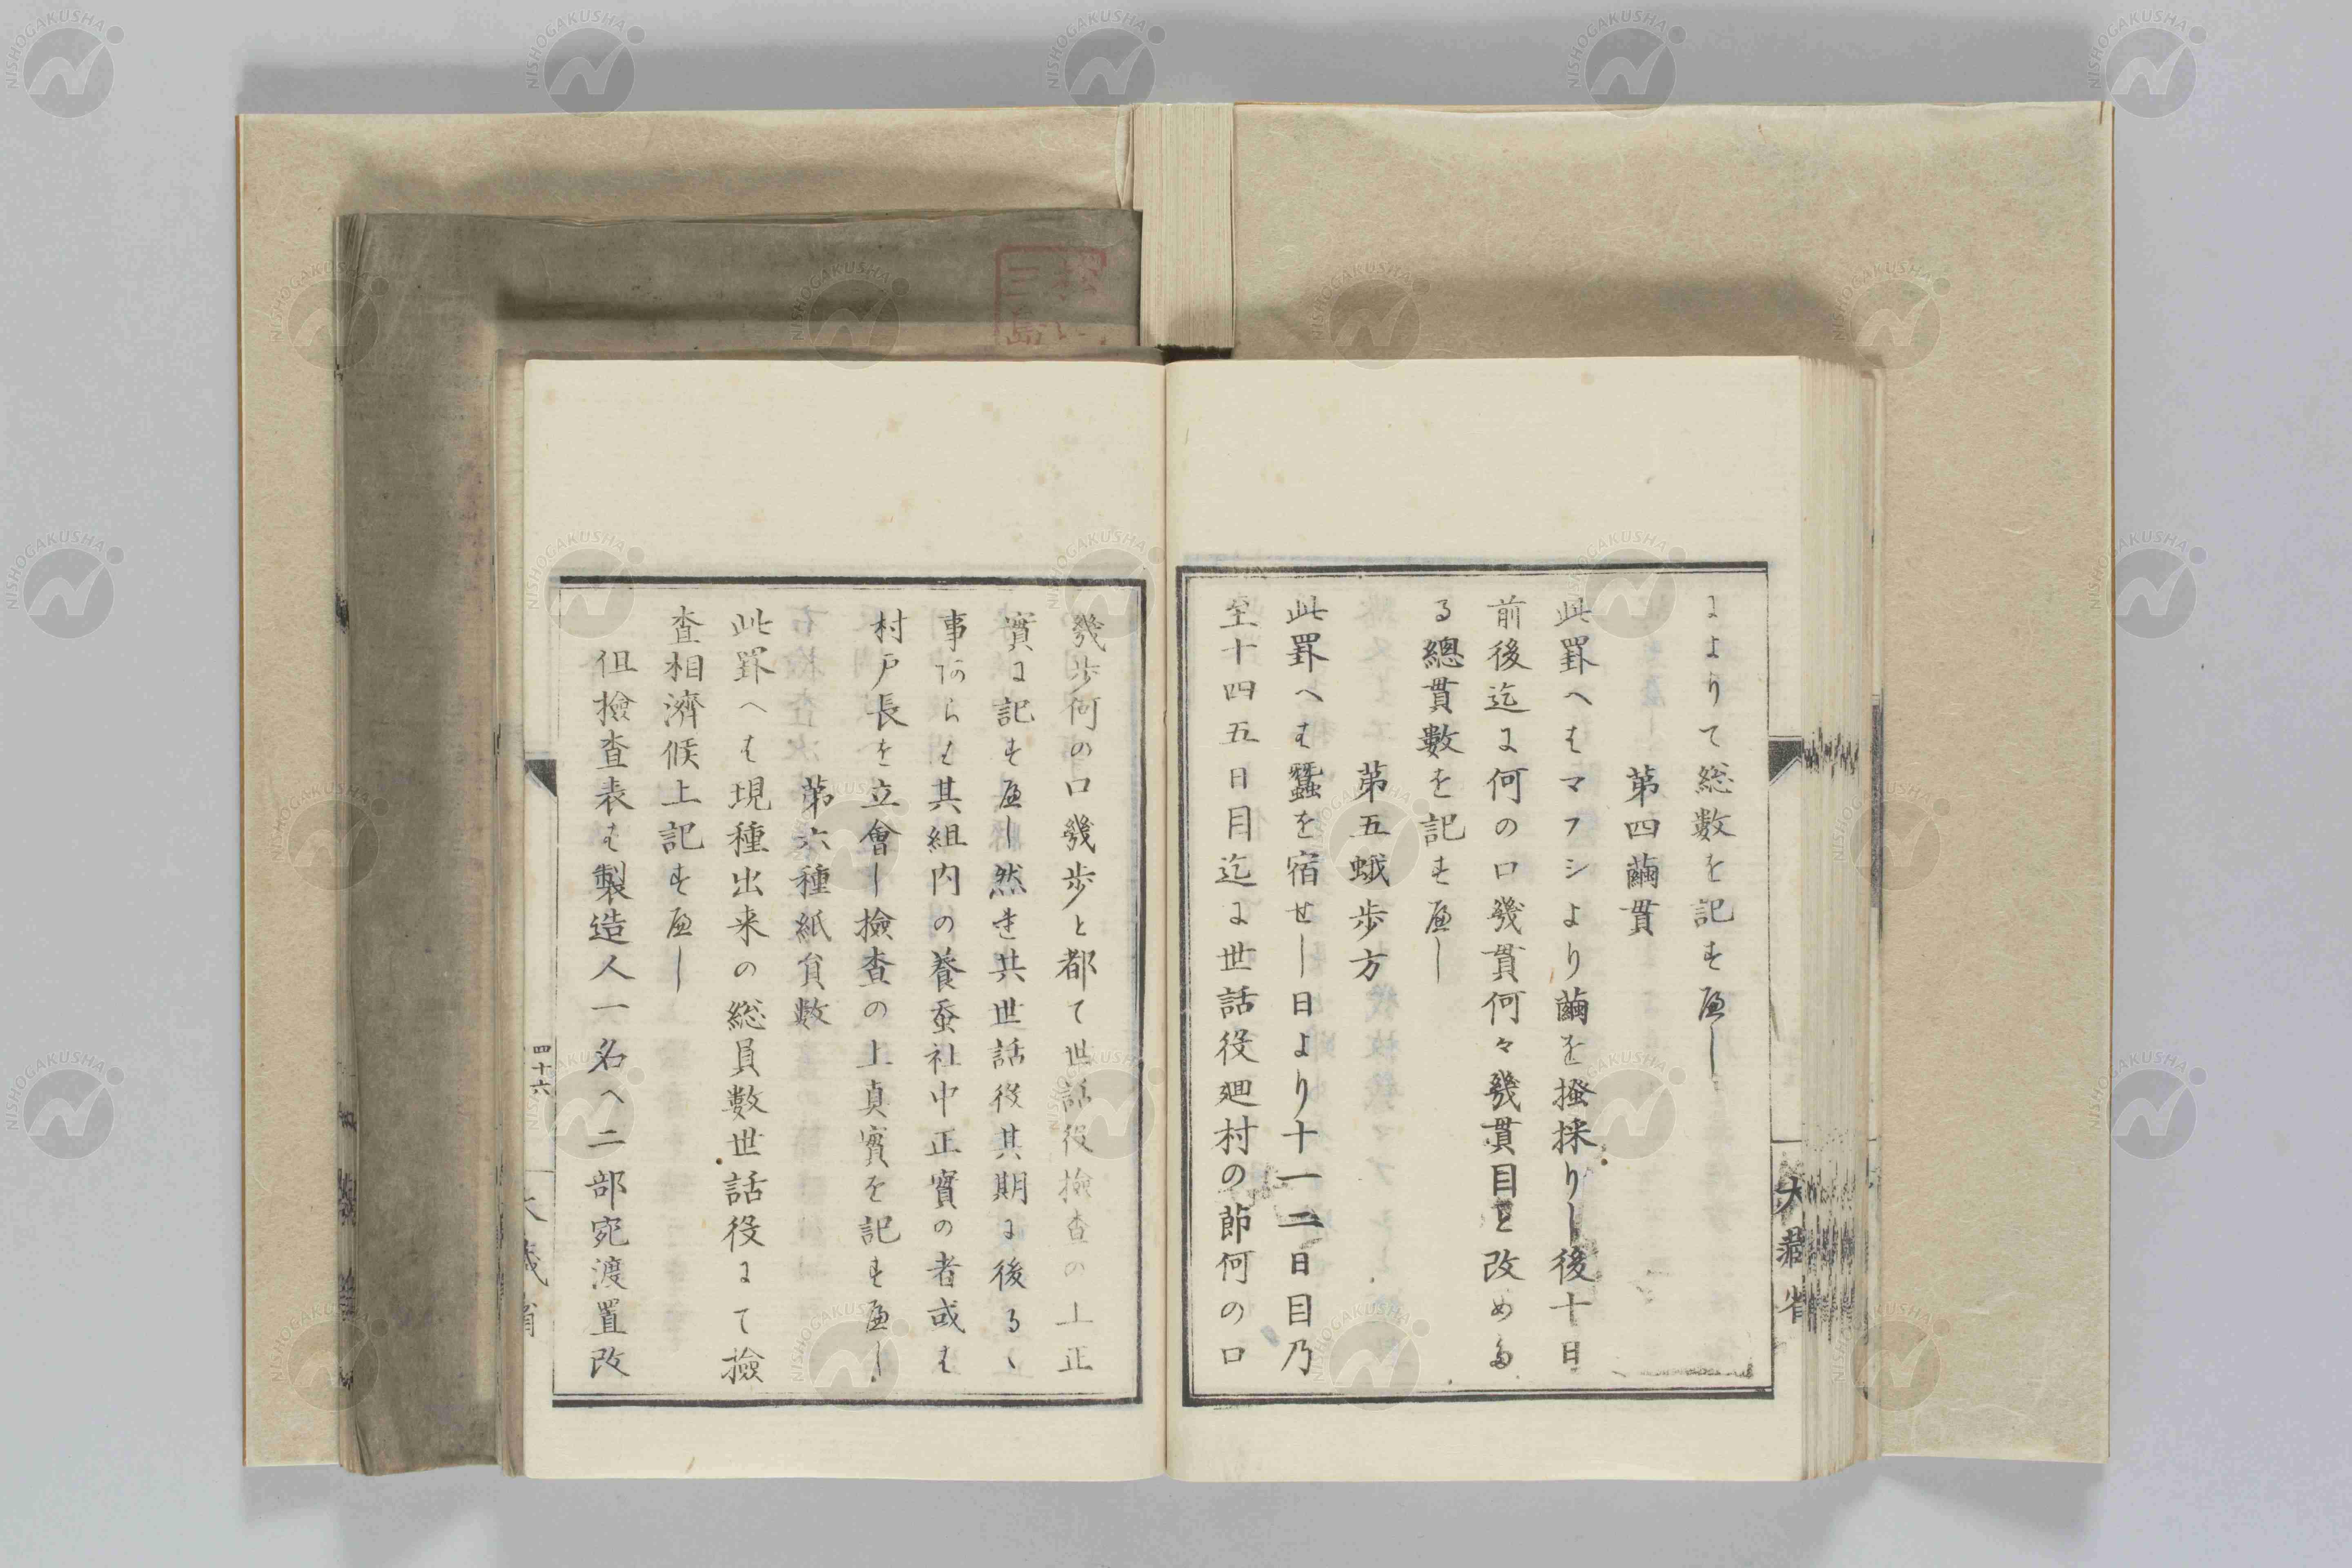 によりて総数を記すべし
第四繭貫
此罫へはマフシより繭を掻採りし後十日
前後迄に何の口幾貫何々幾貫目と改めた
る總貫數を記すべし
第五蛾歩方
此罫へは蠶を宿せし日より十一二日目乃
至十四五日目迄に世話役廻村の節何の口
幾歩何の口幾歩と都て世話役撿査の上正
實に記すべし然を共世話役其期に後るゝ
事あらは其組内の養蚕社中正實の者或は
村戸長を立會し撿査の上真實を記すべし
第六種紙負數
此罫へは現種出来の総員數世話役にて撿
査相濟候上記すべし
但撿査表は製造人一名へ二部宛渡置改
四十六
大藏省
大藏省
三島
NISHOGAKUSHA